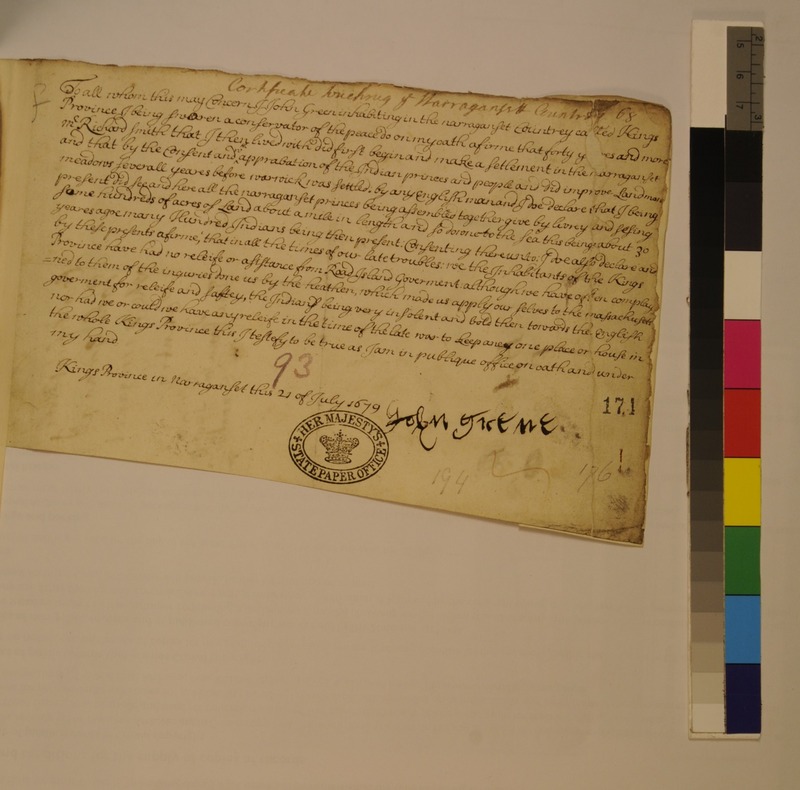 Certificate touching ye Narragansett Country 68
To all whom this may Concern I John Green inhabiting in the narraganset Countrey ca ed Kings
Province I being sworen a conservator of the peace do on my oath afirme that forty y res and more
mr Richard Smith that I then lived with did first begin and make a settlement in the narraganset
and that by the Consent and approbation of the Indian princes and people and did improve Land mow
meadows severall yeares before warwick was settled, by any English man and I doe declare that I being
present did see and here all the narraganset princes being assembled together give by livery and sesing
some hundreds of acres of Land about a mile in length and so downe to the sea this being about 30
yeares agoe many Hundred Indians being then present Consenting thereunto. I doe also declare and
by these presents afirme, that in all the times of our late troubles: we the Inhabitants of the Kings
Province have had no releife or asistance from Road Island Goverment although we have often complay
=ned to them of the inguries done us by the heathen, which made us apply our selves to the massachusets
goverment for releife and saftey, the Indians being very insolent and bold then towards the English
nor had we or could we have any releife in the time of the late war to keep any one place or house in
the whole Kings Province this I testefy to be true as I am in publique office on oath and under
my hand
93
Kings Province in Narraganset this 21 of July 1679
John Grene.
171
HER MAJESTY'S STATE PAPER OFFICE
194
176